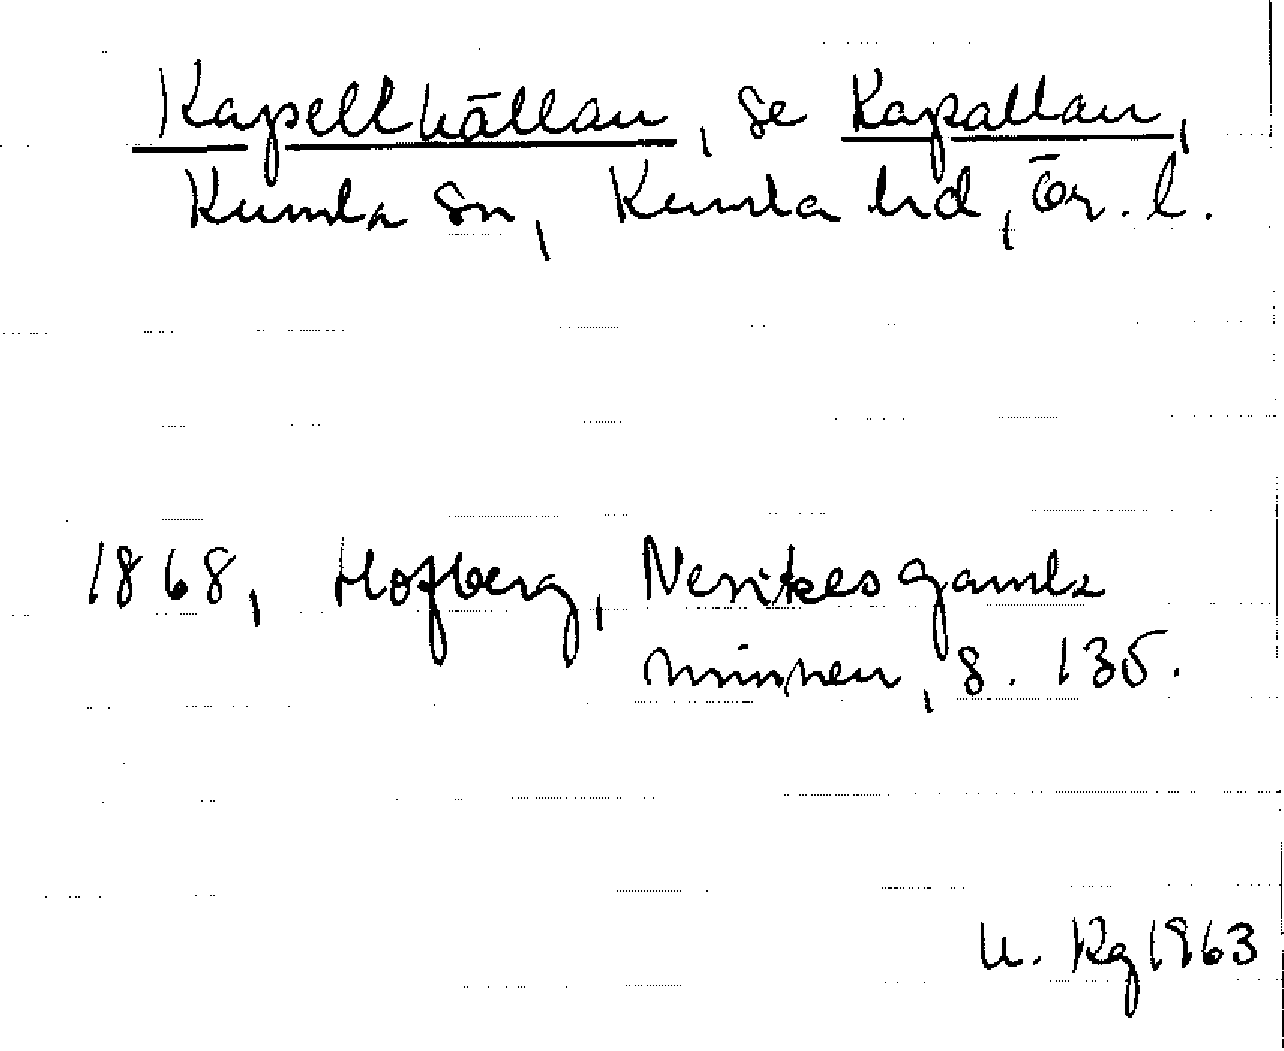 Kapellhällan, se Kapallan,
Kumla sn, Kumla hd, Ör. l.
1868, Hofberg, Nerikes gamla
minnen, s. 135.
U. Rg 1963